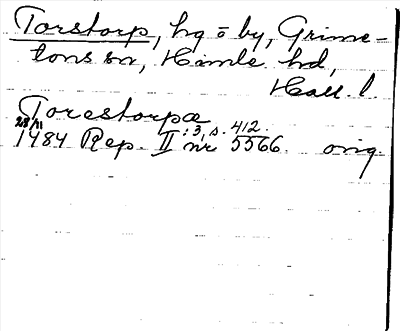 Torstorp, hg o by, Grime-
tons sn, Himle hd,
Hall. l.
Torestorpa
28/11 1484 Rep. II:3, s. 412. nr 5566. orig.